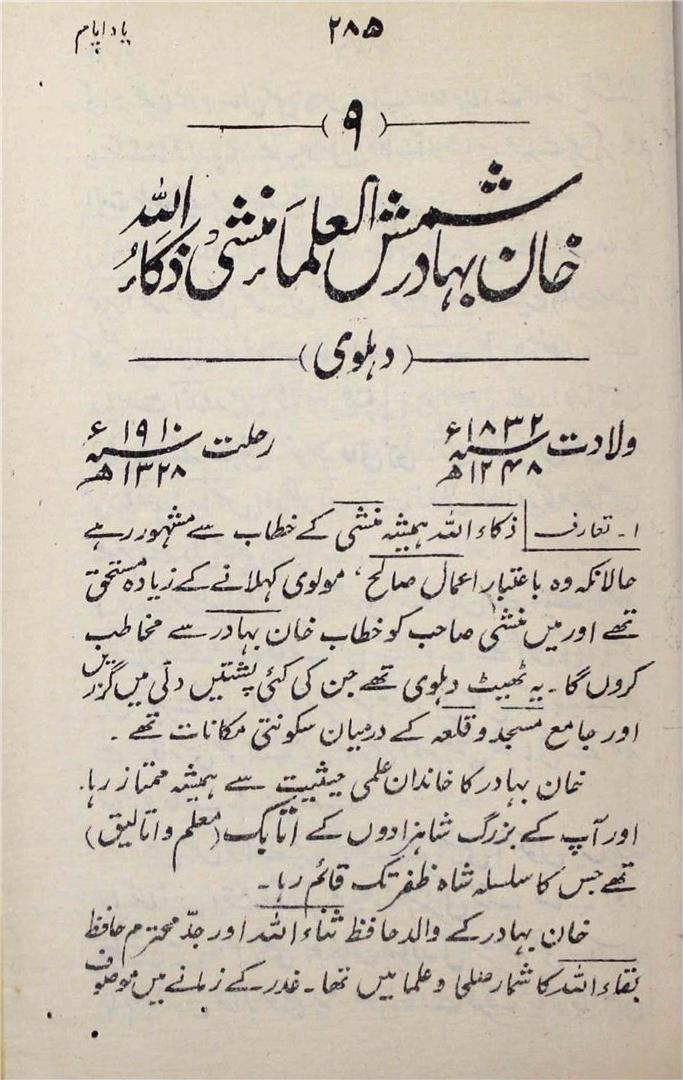 یاد ایام
۲۸۵
(۹)
خان بہادر شمس العلماء منشی ذکاء اللہ
(دہلوی)
ولادت سنہ ۱۸۳۲ء ۱۲۴۸ھ رحلت سنہ ۱۹۱۰ء ۱۳۲۸ھ
۱۔ تعارف ذکاء اللہ ہمیشہ منشی کے خطاب سے مشہور رہے
حالانکہ وہ باعتبار اعمال صالح، مولوی کہلانے کے زیادہ مستحق
تھے اور میں منشی صاحب کو خطاب خان بہادر سے مخاطب
کروں گا۔ یہ ٹھیٹ دہلوی تھے جن کی کئی پشتیں دلّی میں گزریں
اور جامع مسجد و قلعہ کے درمیان سکونتی مکانات تھے۔
خان بہادر کا خاندان علمی حیثیت سے ہمیشہ ممتاز رہا۔
اور آپ کے بزرگ شاہزادوں کے اتابک (معلم و اتالیق)
تھے جس کا سلسلہ شاہ ظفر تک قائم رہا۔
خان بہادر کے والد حافظ ثناء اللہ اور جدّ محترم حافظ
بقاء اللہ کا شمار صلحا و علما میں تھا۔ غدر کے زمانے میں موصوف